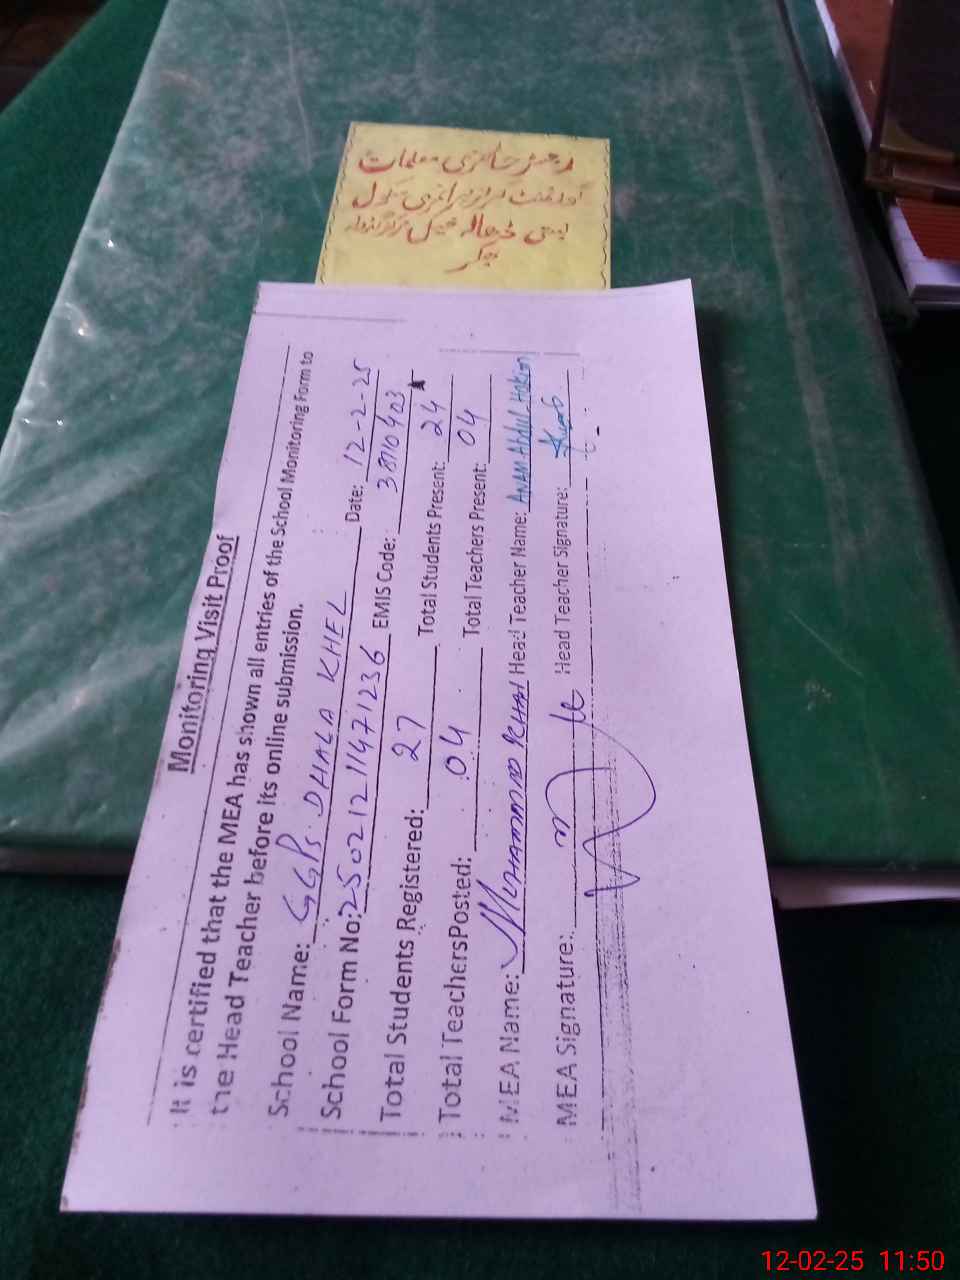 رجسٹر حاضری معلمات
گورنمنٹ گرلز پرائمری سکول
بستی ڈھالہ خیل مرکز
بھکر
Monitoring Visit Proof
It is certified that the MEA has shown all entries of the School Monitoring Form to
the Head Teacher before its online submission.
School Name: GGPS DHALA KHEL Date: 12-2-25
School Form No: 25021211471236 EMIS Code: 38110403
Total Students Registered: 27 Total Students Present: 24
Total Teachers Posted: 04 Total Teachers Present: 04
MEA Name: MUHAMMAD KHAN Head Teacher Name: ANAM Abdul Hakim
MEA Signature: Head Teacher Signature:
12-02-25 11:50